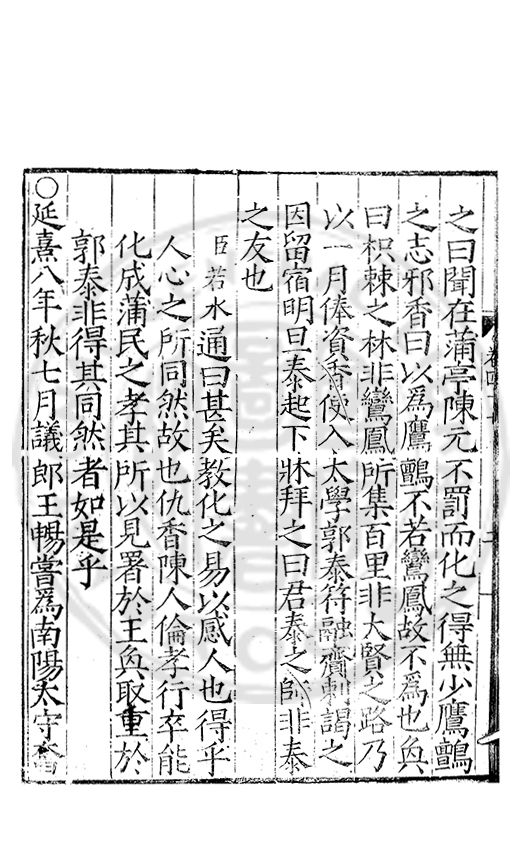 之曰聞在蒲亭陳元不罰而化之得無少鷹鸇
之志邪香曰以爲鷹鸇不若鸞鳳故不爲也奐
曰枳棘之林非鸞鳳所集百里非大賢之路乃
以一月俸資香使入太學郭泰符融齎刺謁之
因留宿明旦泰起下牀拜之曰君泰之師非泰
之友也
臣若水通曰甚矣敎化之易以感人也得乎
人心之所同然故也仇香陳人倫孝行卒能
化成蒲民之孝其所以見署於王奐取重於
郭泰非得其同然者如是乎
○延熹八年秋七月議郎王暢嘗爲南陽太守奮
卷四